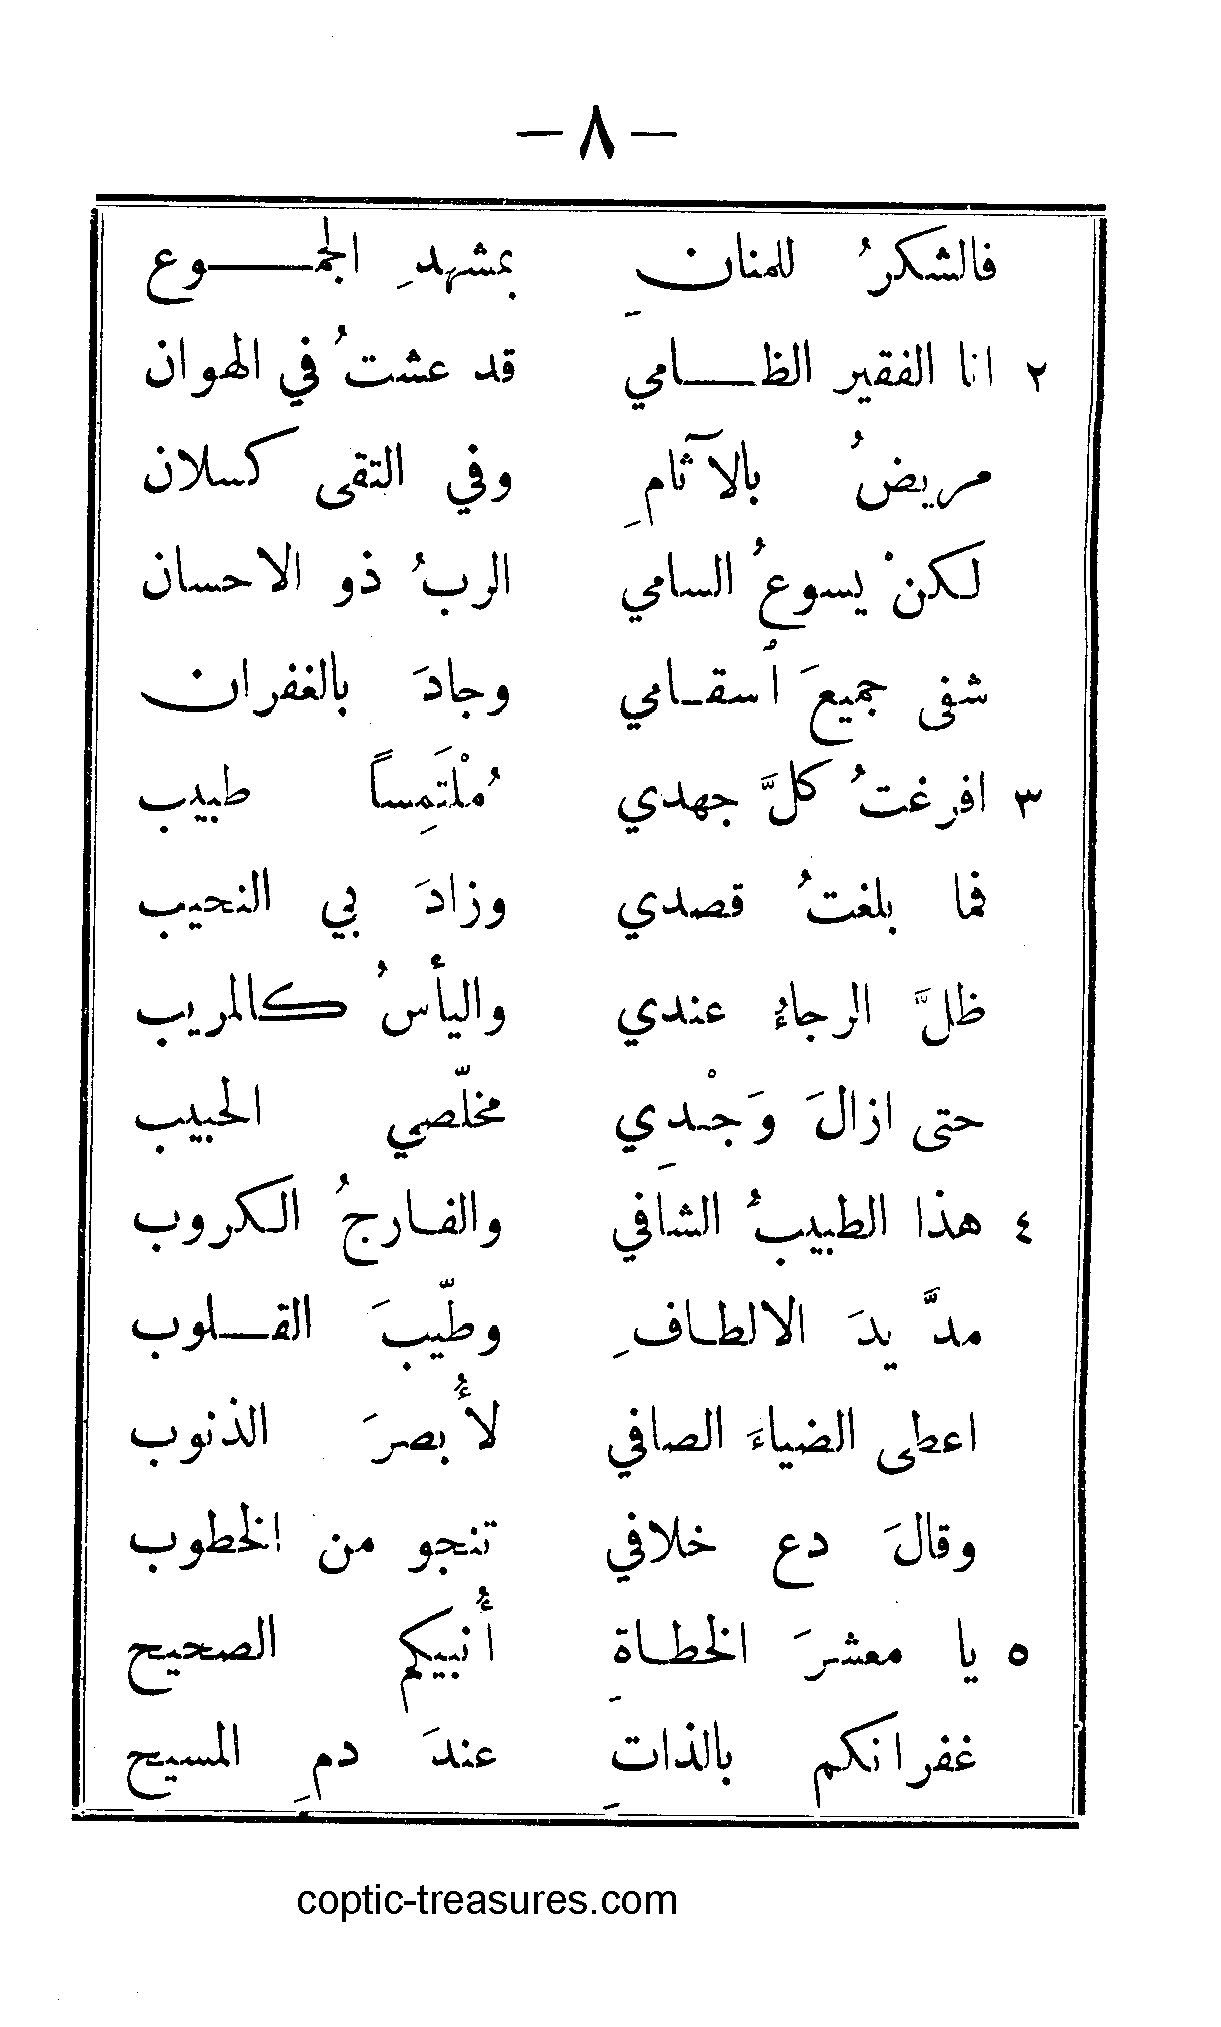 — ٨ —
فالشكرُ للمنانِ بمشهدِ الجموع
٢ انا الفقير الظامي قد عشتُ في الهوان
مريضُ بالآثامِ وفي التقى كسلان
لكنْ يسوعُ السامي الربُ ذو الاحسان
شفى جميعَ أسقامي وجادَ بالغفران
٣ افرغتُ كلَّ جهدي مُلْتَمِساً طبيب
فما بلغتُ قصدي وزادَ بي النحيب
ظلَّ الرجاءُ عندي واليأسُ كالمريب
حتى ازالَ وَجْدِي مخلّصي الحبيب
٤ هذا الطبيبُ الشافي والفارجُ الكروب
مدَّ يدَ الالطافِ وطيّبَ القلوب
اعطى الضياءَ الصافي لأُبصرَ الذنوب
وقالَ دع خلافي تنجو من الخطوب
٥ يا معشرَ الخطاةِ أُنبيكم الصحيح
غفرانكم بالذاتِ عندَ دمِ المسيح
coptic-treasures.com